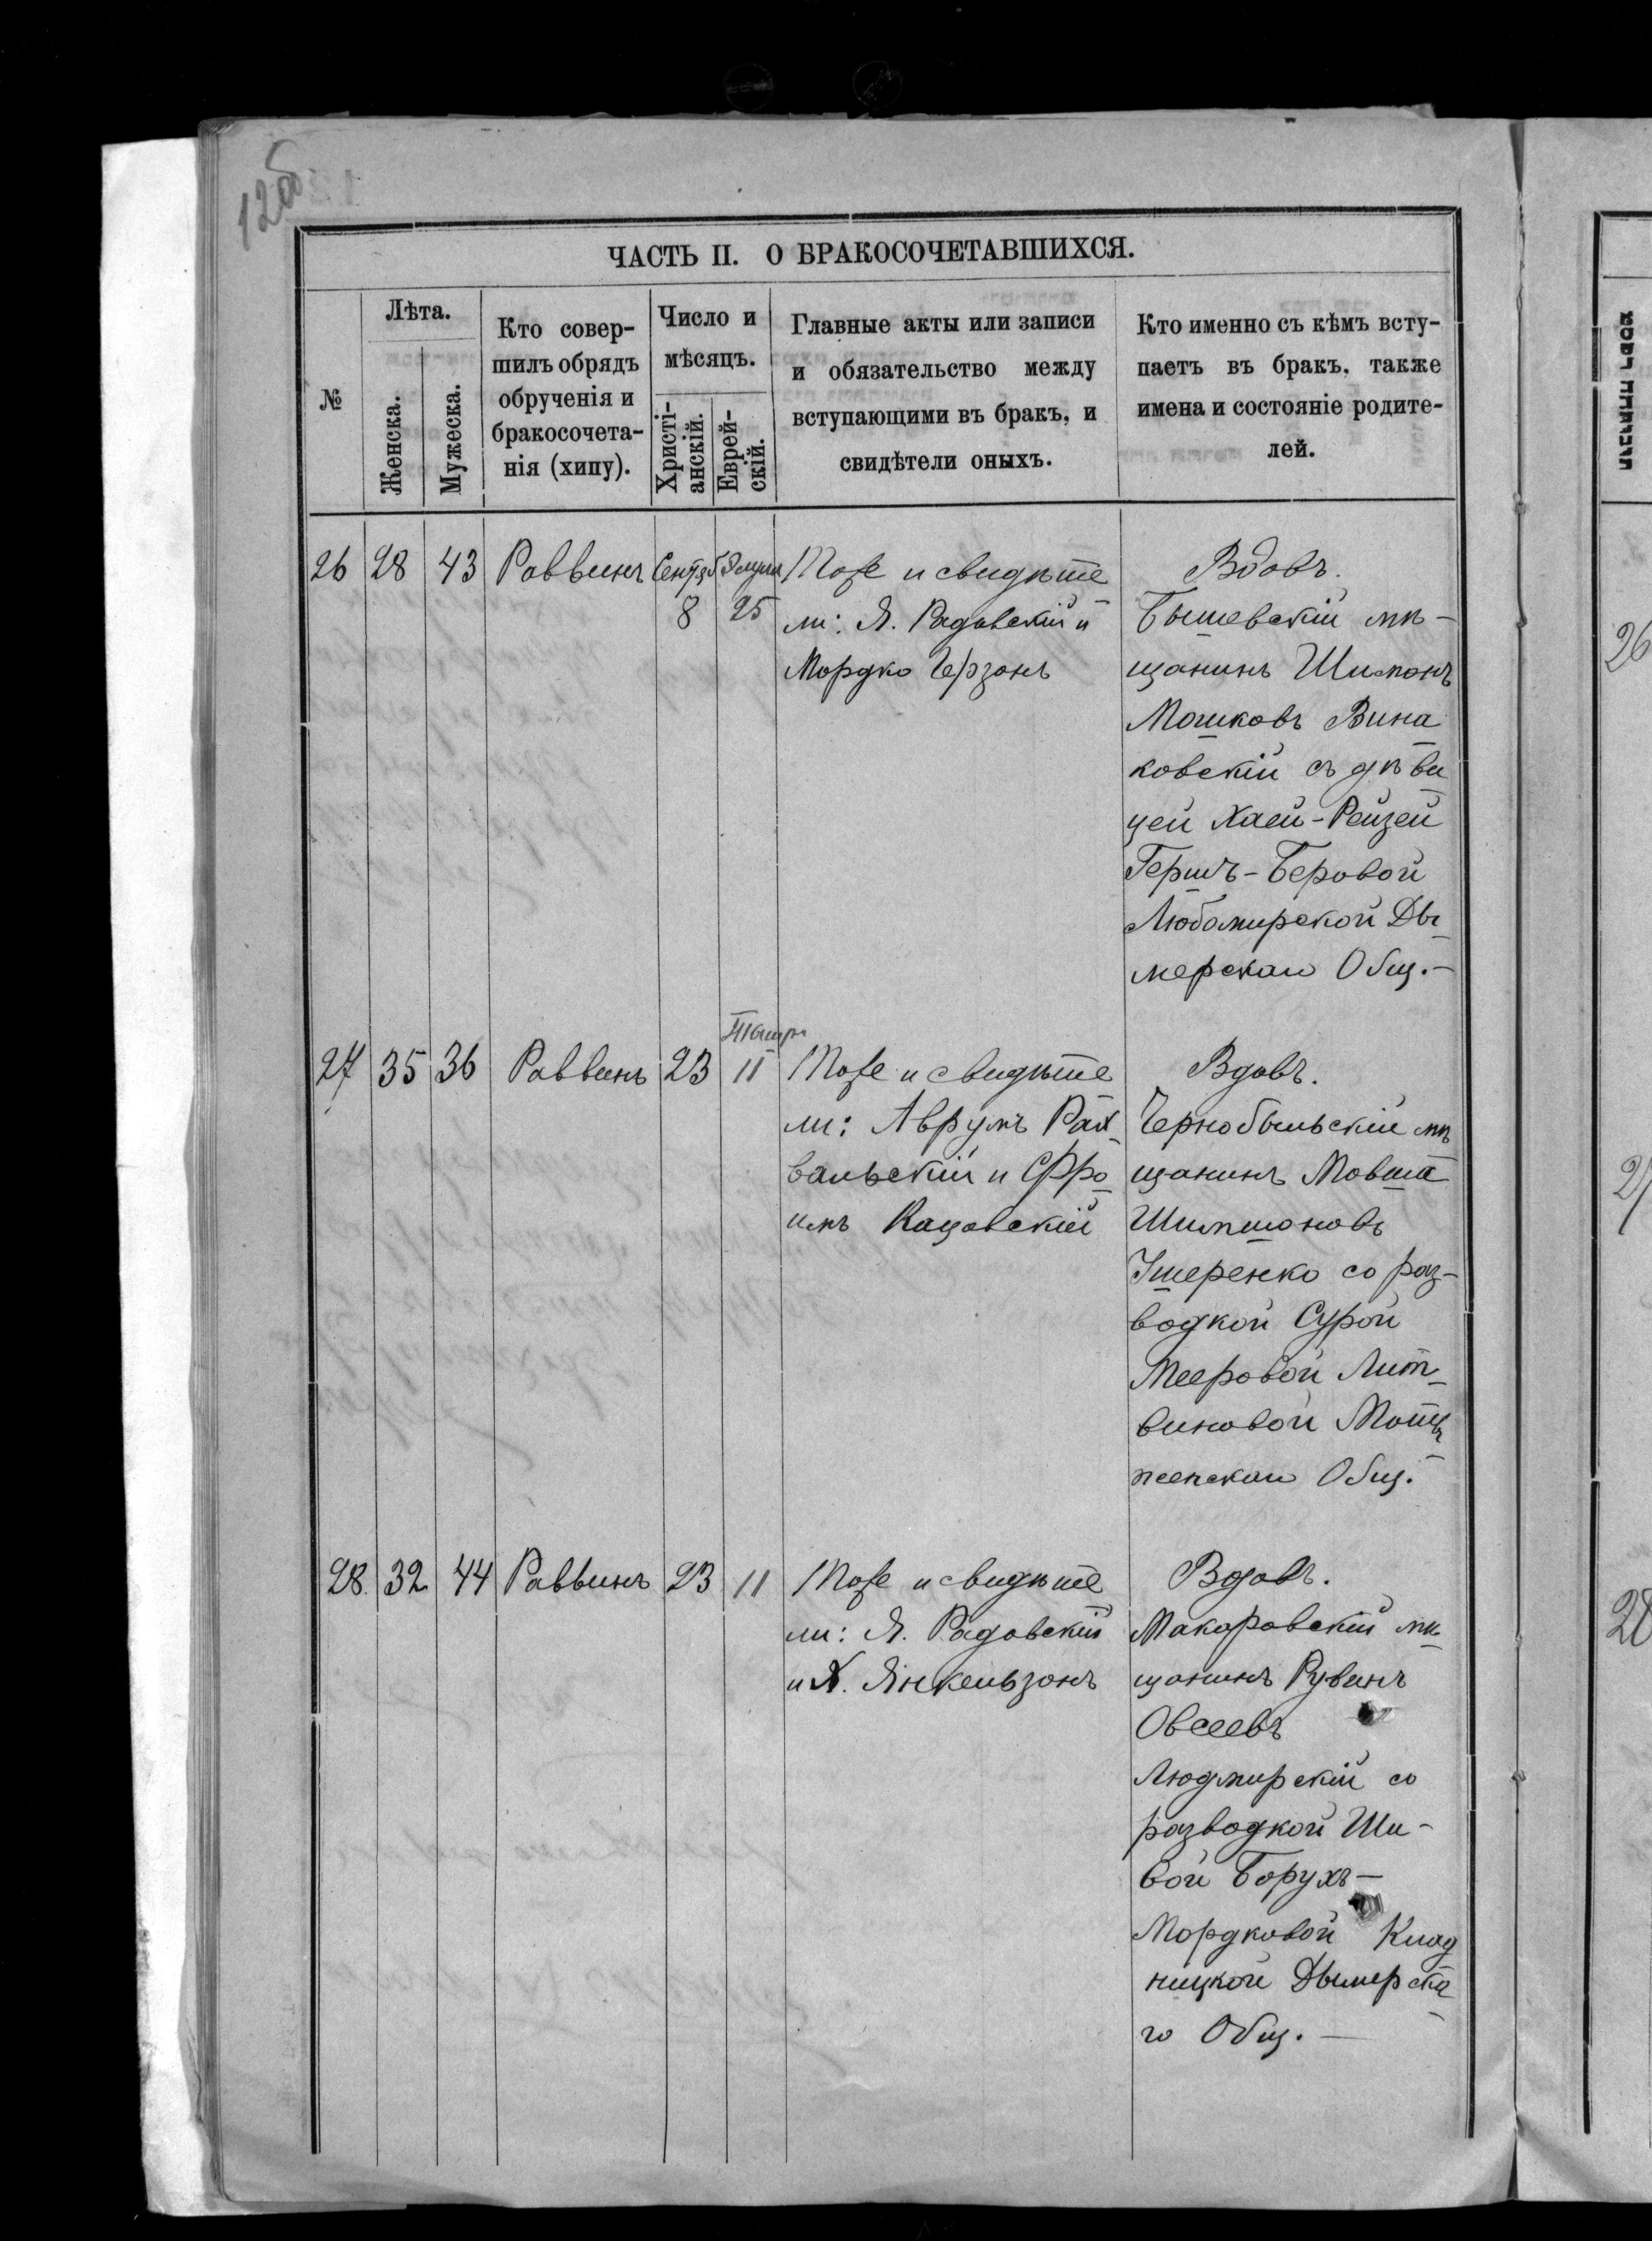 12об
ЧАСТЬ II. О БРАКОСОЧЕТАВШИХСЯ.
№
Лѣта.
Женска.
Мужеска.
Кто совер-
шилъ обрядъ
обрученія и
бракосочета-
нія (хипу).
Число и
мѣсяцъ.
Христі-
анскій.
Еврей-
скій.
Главные акты или записи
и обязательство между
вступающими въ бракъ, и
свидѣтели оныхъ.
Кто именно съ кѣмъ всту-
паетъ въ бракъ, также
имена и состояніе родите-
лей.
26 28 43 Раввинъ Сентяб Элула
8 25
Тоже и свидѣте
ли: Я. Радовскій и
Мордко Герзонъ
Вдовъ.
Бышевскій мѣ-
щанинъ Шимонъ
Мошковъ Вина
ковскій съ дѣви
цей Хаей-Рейзей
Гершъ-Беровой
Любомирской Ды
мерскаго Общ.-
27 35 36 Раввинъ 23 Тишри
11
Тоже и свидѣте
ли: Аврумъ Рах
вальскій и Фро
имъ Кацовскій
Вдовъ.
Чернобыльскій мѣ
щанинъ Мовша
Шимшоновъ
Ушеренко со раз-
водкой Сурой
Мееровой Лит-
виновой Моты
женскаго Общ.-
28. 32 44 Раввинъ 23 11
Тоже и свидѣте
ли: Я. Радовскій
и Х. Янкельзонъ
Вдовъ.
Макаровскій мѣ
щанинъ Рувинъ
Овсеевъ
Людмирскій со
разводкой Ши-
вой Борухъ-
Мордковой Клад
ницкой Дымерска
го Общ.-
26
27
28